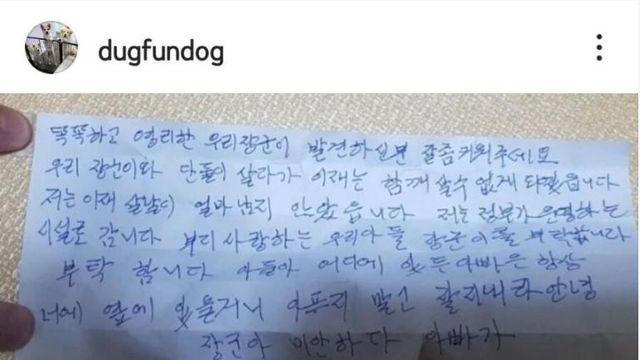 dugfundog
똑똑하고 영리한 우리장군이 발견하신분 잘좀키워주세요
우리 장군이와 단둘이 살다가 이재는 함께 살수 없게 돼겠읍니다
저는 이재 살날이 얼마 남지 안았읍니다 저는 정부가 운영하는
시설로 갑니다 부디 사랑하는 우리아들 장군이를 부탁합니다
부탁 합니다 아들아 어디에 있든 아빠은 항상
너에 옆에 있을거니 아푸지 말고 잘지내라 안녕
장군아 미안하다 아빠가